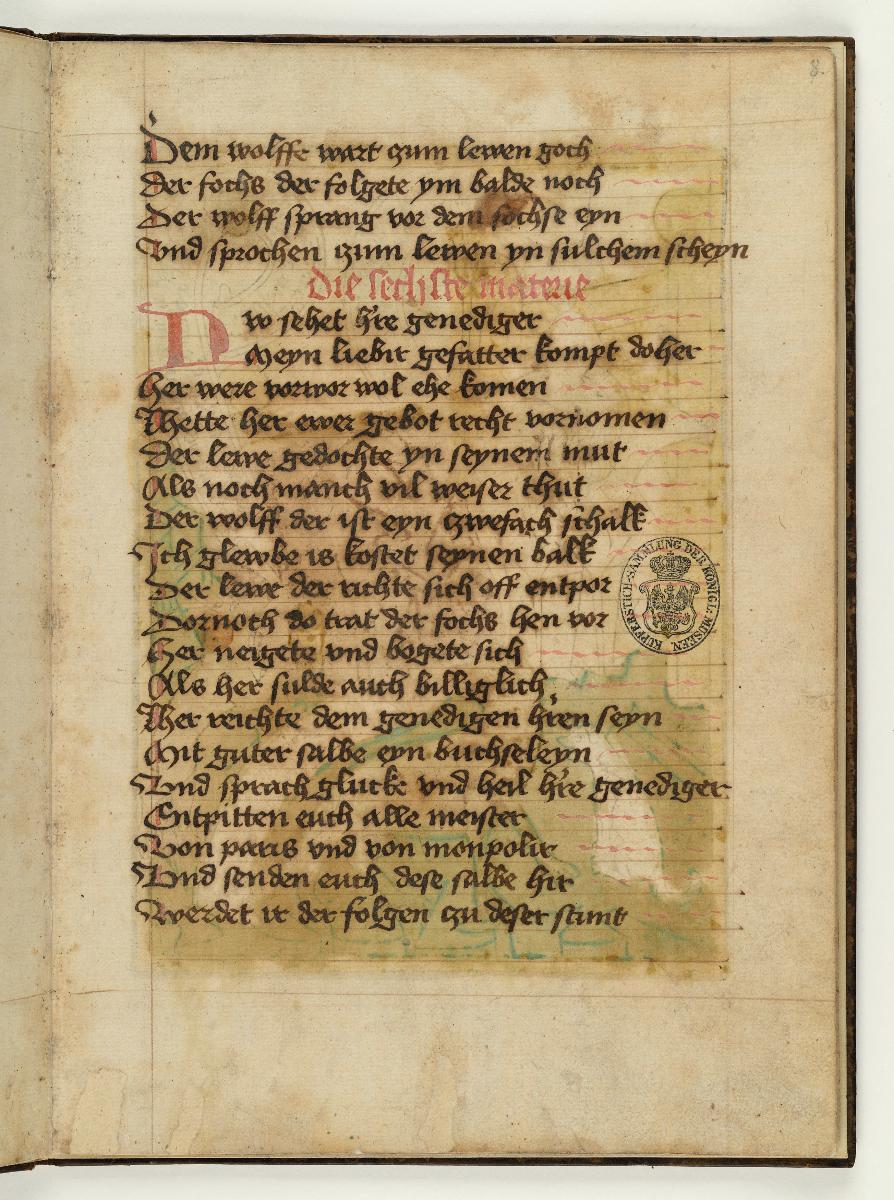 8.
Dem wolffe wart czum lewen goch
Der fochs der folgete ym balde noch
Der wolff sprang vor dem fochse eyn
Vnd sprochen czum lewen yn sulchem scheyn
Die sechste materie
Nw sehet h're genediger
Meyn liebir gefatter kompt doher
Her were vorwor wol ehe komen
Hette her ewer gebot recht vornomen
Der lewe gedochte yn seynem mut
Als noch manch vil weiser thut
Der wolff der ist eyn czwefach schalk
Ich glewbe is kostet seynen balk
Der lewe der richte sich off entpor
Dornoch do trat der fochs hen vor
Her neigete vnd bogete sich
Als her sulde auch billiglich
Her reichte dem genedigen h'ren seyn
Mit guter salbe eyn buchseleyn
Vnd sprach glucke vnd heil h're genediger
Entpitten euch alle meister
Von paris vnd von monpolir
Vnd senden euch dese salbe hir
Werdet ir der folgen czu deser stunt
KUPFERSTICH-SAMMLUNG DER KÖNIGL: MUSEEN.